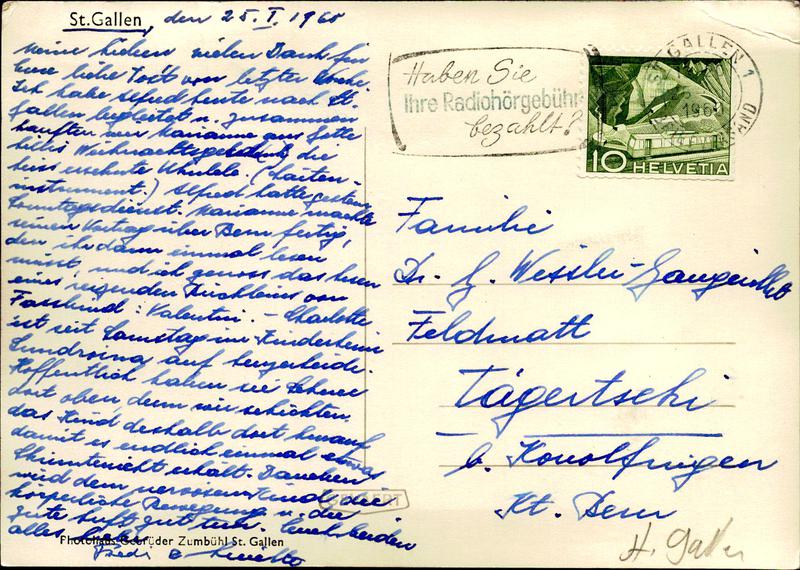 St.Gallen, den 25. I. 1960
Meine Lieben vielen Dank für
Eure liebe Post von letzter Woche.
Ich habe Alfred heute nach St.
Gallen begleitet u. zusammen
kauften wir Marianne aus
Weihnachtsgeschenk die
heiss ersehnte Ukulele. (Saiten-
instrument.) Alfred hatte gestern
Sonntagsdienst. Marianne machte
seinen Vortrag über Bern fertig,
den ihr dann einmal lesen
müsst, und ich genoss das lesen
eines reizenden Büchleins von
Fassbind: Valentini. - Charlotte
ist seit Samstag im Kinderheim
auf
Hoffentlich haben sie Schnee
dort oben, denn wir schickten
das Kind deshalb dort hinauf
damit es endlich einmal etwas
erhält. Daneben
wird dem nervösen Kind die
körperliche Bewegung u. die
gute Luft gut tun. Euch beiden
alles
Photohaus Gebrüder Zumbühl St. Gallen
Haben Sie
Ihre Radiohörgebühr
bezahlt?
ST. GALLEN 1
1960
10 HELVETIA
Familie
Dr. G. Wessler-Gangeillet
Feldmatt
Tägertschi
b. Konolfingen
Kt. Bern
St. Gallen